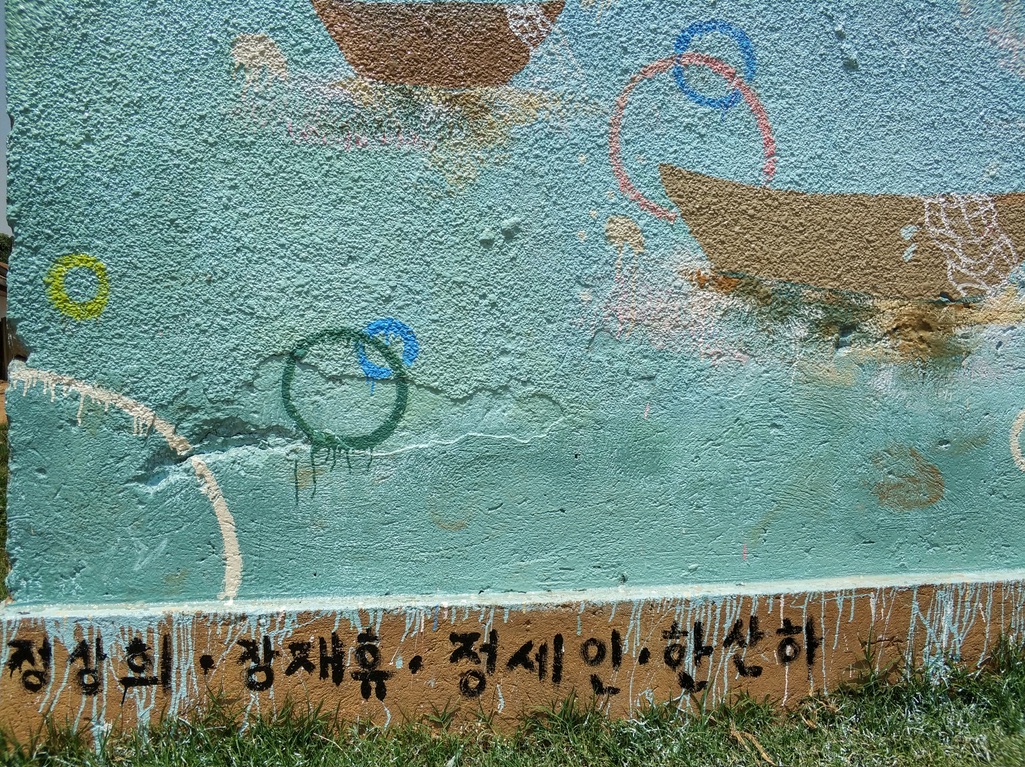 정상희 · 장재휴 · 정세인 · 한산하